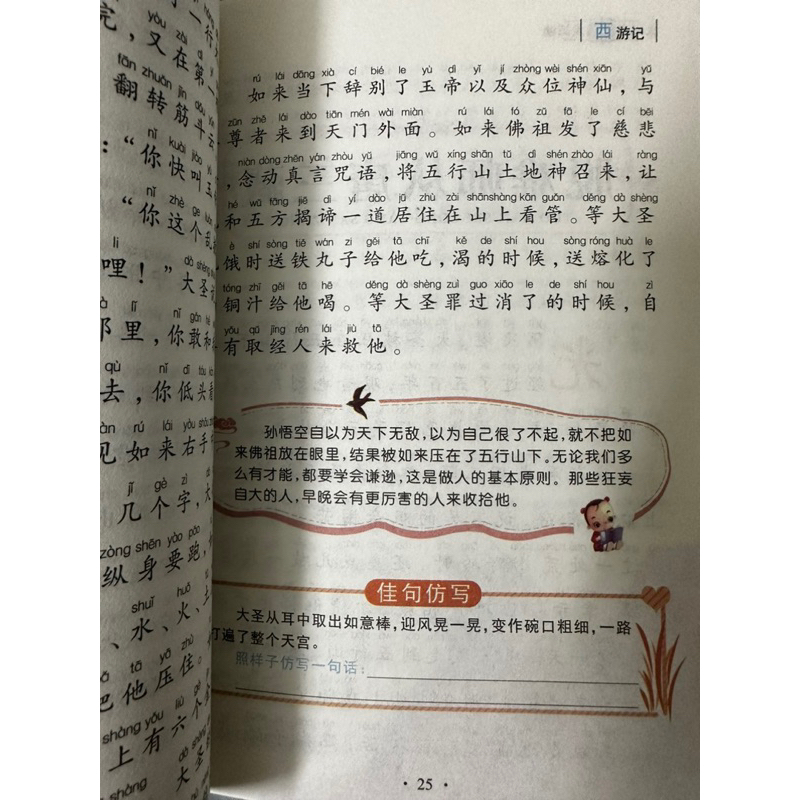 完,又在第一
fān zhuǎn jīn dǒu
翻转筋斗
nǐ kuài jiào
:“你快叫玉
nǐ zhè ge luàn
“你这个乱
li dà shèng
哩!”大圣
lǐ nǐ gǎn hé
那里,你敢和
qù nǐ dī tóu kàn
去,你低头看
jiàn rú lái yòu shǒu
见如来右手
jǐ gè zì dà
几个字,大
zòng shēn yào pǎo
纵身要跑,
shuǐ huǒ
、水、火、土
bǎ tā yā zhù
把他压住。
shàng yǒu liù gè
上有六个金
dà shèng
大圣
shàng
西游记
rú lái dāng xià cí bié le yù dì yǐ jí zhòng wèi shén xiān yǔ
如来当下辞别了玉帝以及众位神仙,与
zūn zhě lái dào tiān mén wài miàn rú lái fó zǔ fā le cí bēi
尊者来到天门外面。如来佛祖发了慈悲
niàn dòng zhēn yán zhòu yǔ jiāng wǔ xíng shān tǔ dì shén zhào lái ràng
,念动真言咒语,将五行山土地神召来,让
hé wǔ fāng jiē dì yí dào jū zhù zài shān shàng kān guǎn děng dà shèng
和五方揭谛一道居住在山上看管。等大圣
è shí sòng tiě wán zi gěi tā chī kě de shí hou sòng róng huà le
饿时送铁丸子给他吃,渴的时候,送熔化了
tóng zhī gěi tā hē děng dà shèng zuì guo xiāo le de shí hou zì
铜汁给他喝。等大圣罪过消了的时候,自
yǒu qǔ jīng rén lái jiù tā
有取经人来救他。
孙悟空自以为天下无敌,以为自己很了不起,就不把如
来佛祖放在眼里,结果被如来压在了五行山下。无论我们多
么有才能,都要学会谦逊,这是做人的基本原则。那些狂妄
自大的人,早晚会有更厉害的人来收拾他。
佳句仿写
大圣从耳中取出如意棒,迎风晃一晃,变作碗口粗细,一路
打遍了整个天宫。
照样子仿写一句话:
· 25 ·